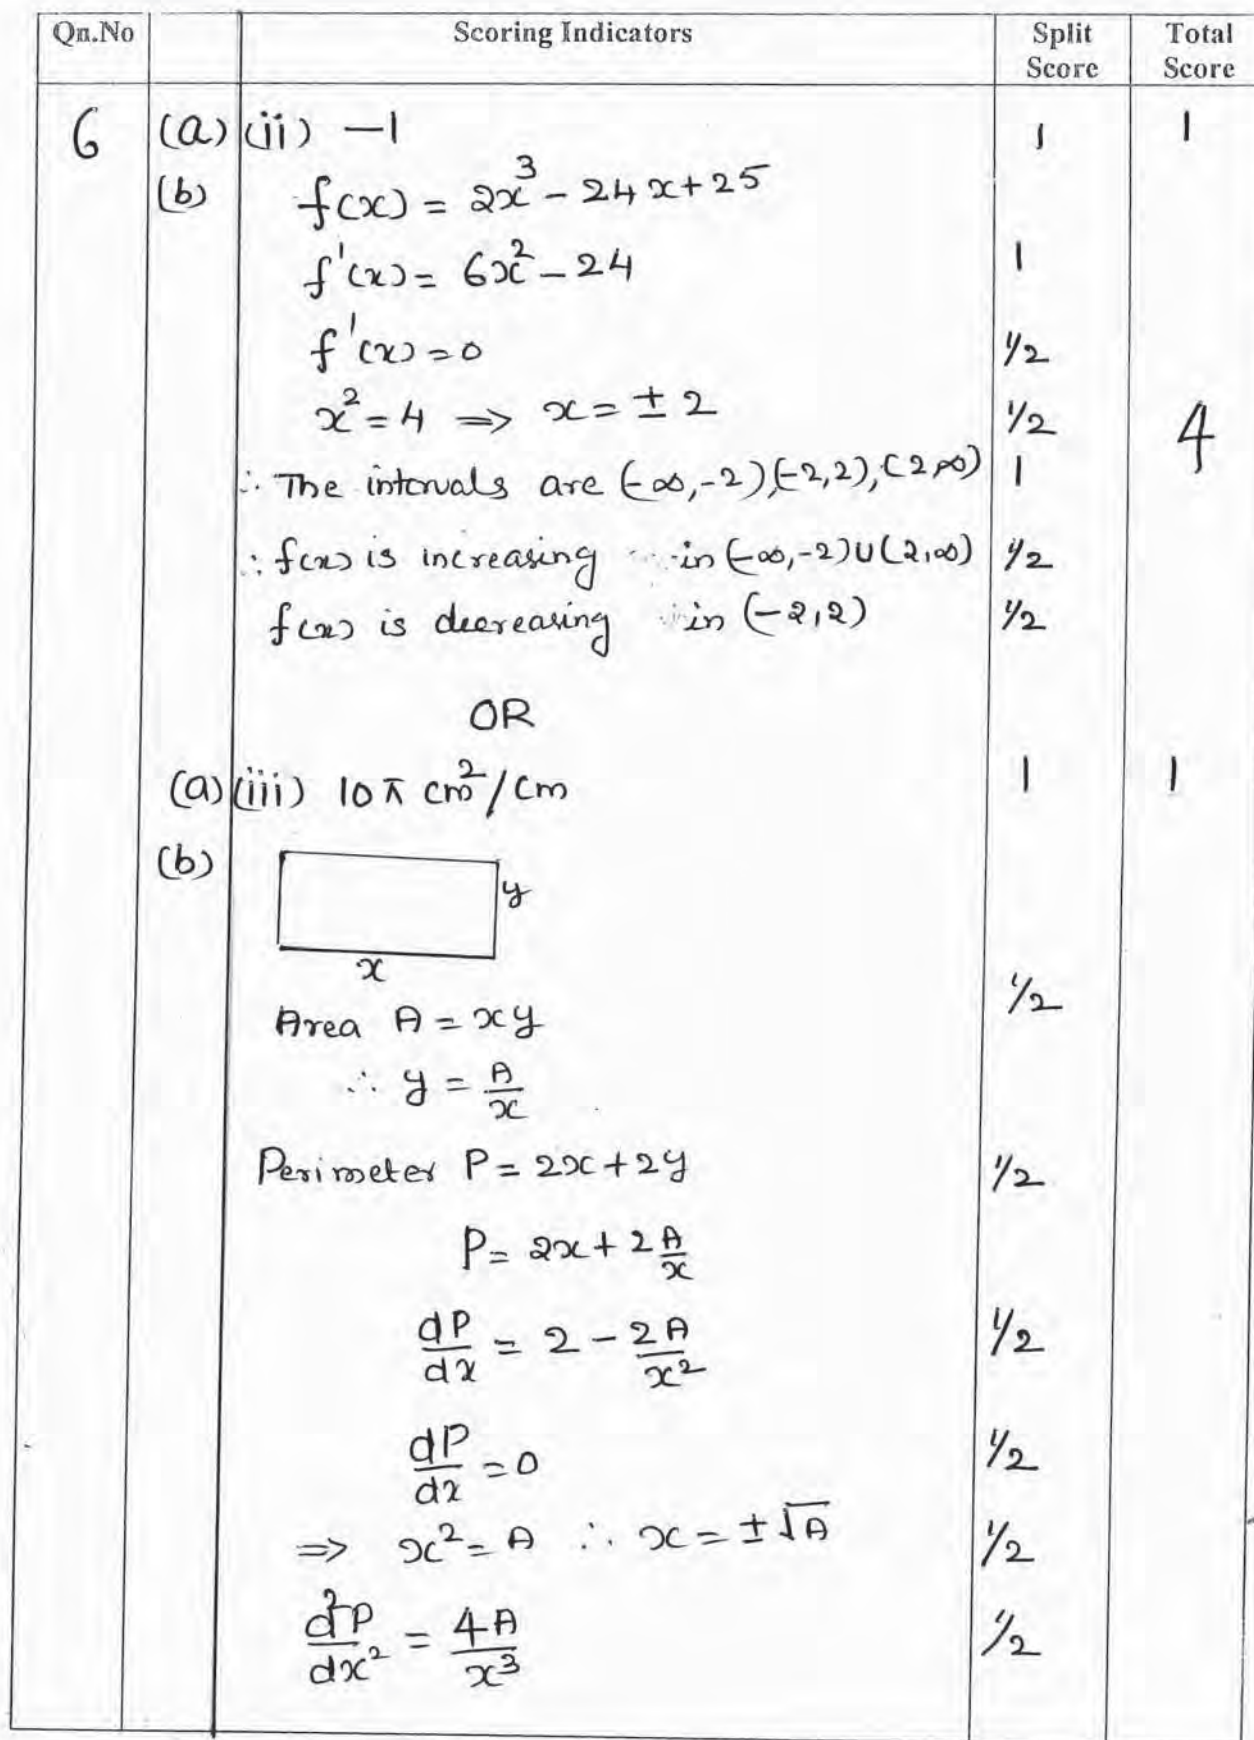 Qn.No Scoring Indicators Split Score Total Score
6 (a) (ii) −1 1 1
(b) f(x) = 2x³ − 24x + 25
f'(x) = 6x² − 24 1
f'(x) = 0 1/2
x² = 4 ⇒ x = ± 2 1/2 4
∴ The intervals are (−∞,−2),(−2,2),(2,∞) 1
∴ f(x) is increasing in (−∞,−2)∪(2,∞) 1/2
f(x) is decreasing in (−2,2) 1/2
OR
(a) (iii) 10π cm²/cm 1 1
(b)
y
x
Area A = xy 1/2
∴ y = A/x
Perimeter P = 2x + 2y 1/2
P = 2x + 2 A/x
dP/dx = 2 − 2A/x² 1/2
dP/dx = 0 1/2
⇒ x² = A ∴ x = ±√A 1/2
d²P/dx² = 4A/x³ 1/2